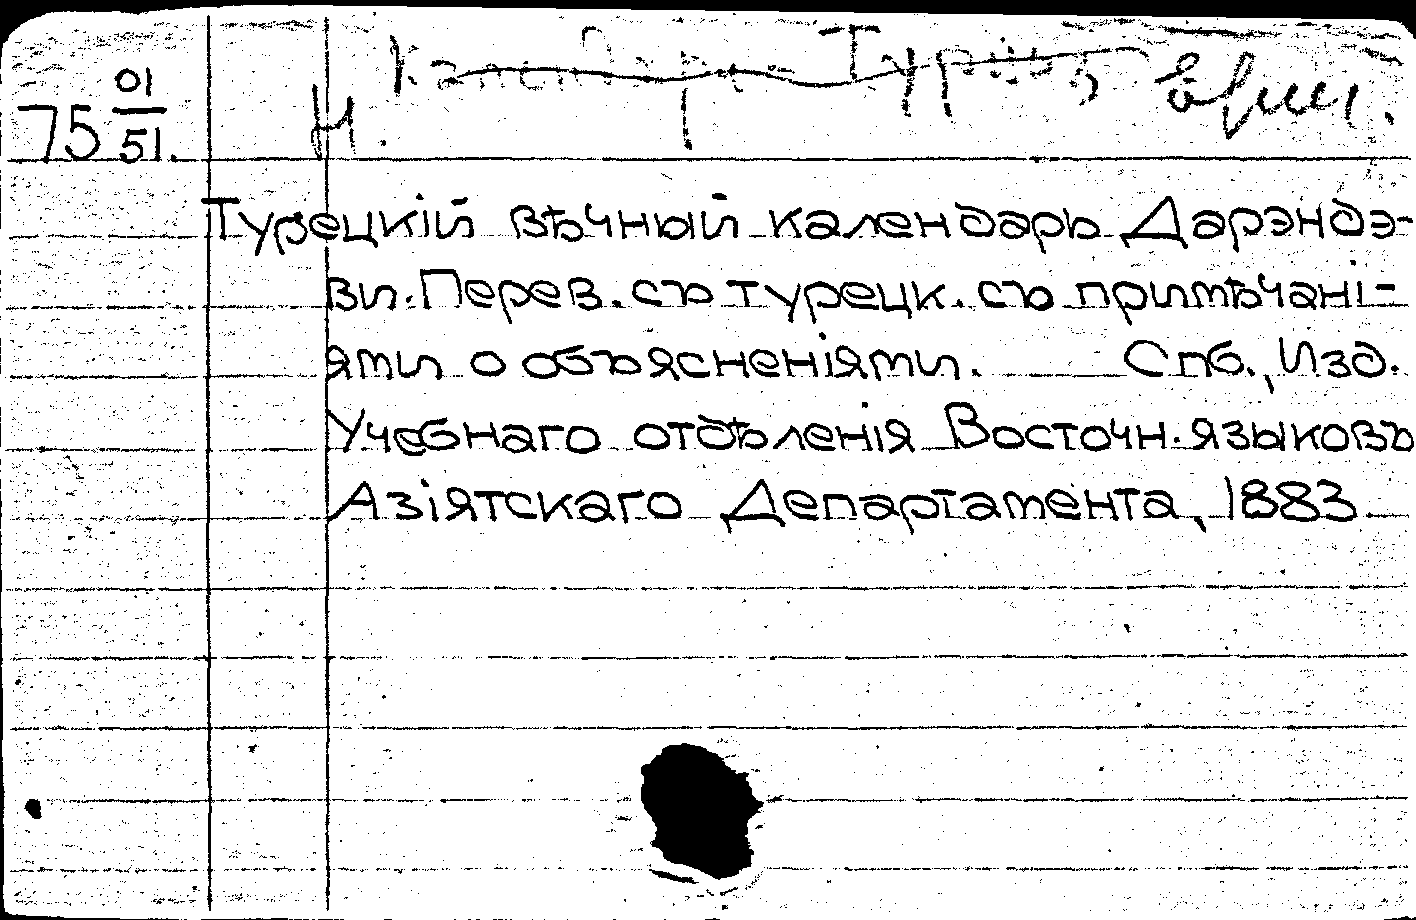 75 01/51.
Н.
Турецкій вѣчный календарь Дарэндэ-
ви. Перев. съ турецк. съ примѣчані-
ями о объясненіями. Спб., Изд.
Учебнаго отдѣленія Восточн. языковъ
Азіятскаго Департамента, 1883